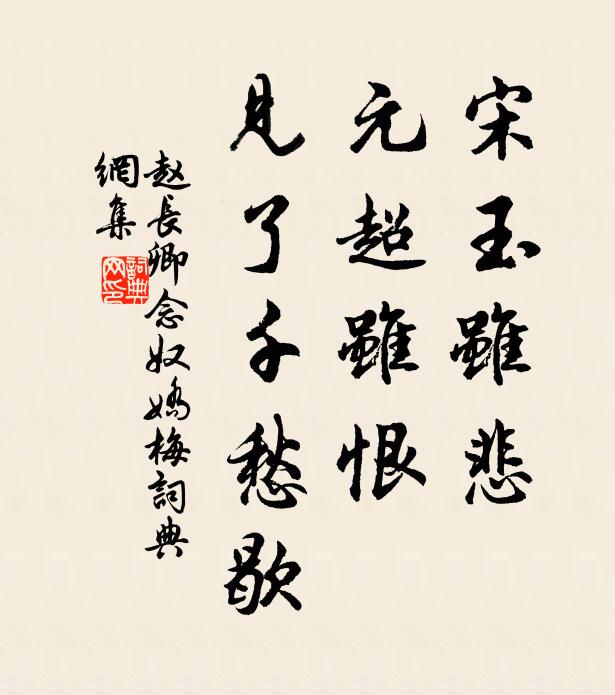 宋玉雖悲
元超雖恨
見了千愁歇
赵長卿念奴嬌梅詞典
網集
詞典
网印